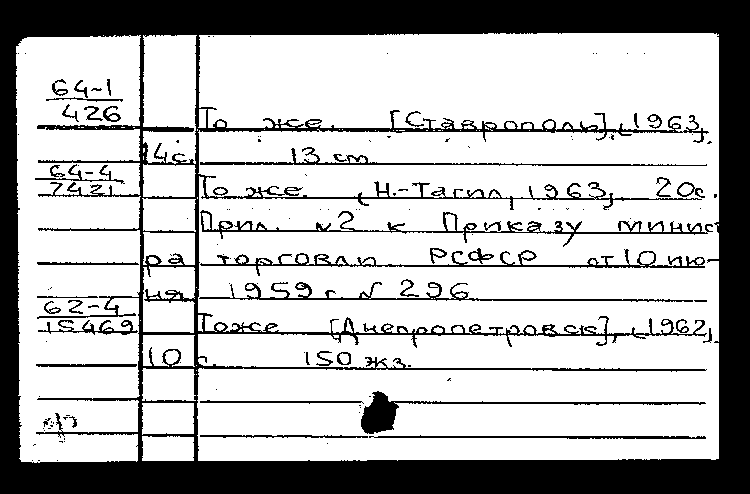 64-1
426
То же. [Ставрополь], [1963].
14 с. 13 cm
64-4
7421
То же. [Н.-Тагил, 1963]. 20 с.
Прил. №2 к Приказу минист
ра торговли РСФСР от 10 ию-
ня 1959 г. № 296
62-4
15469
То же [Днепропетровск], [1962].
10 с. 150 экз.